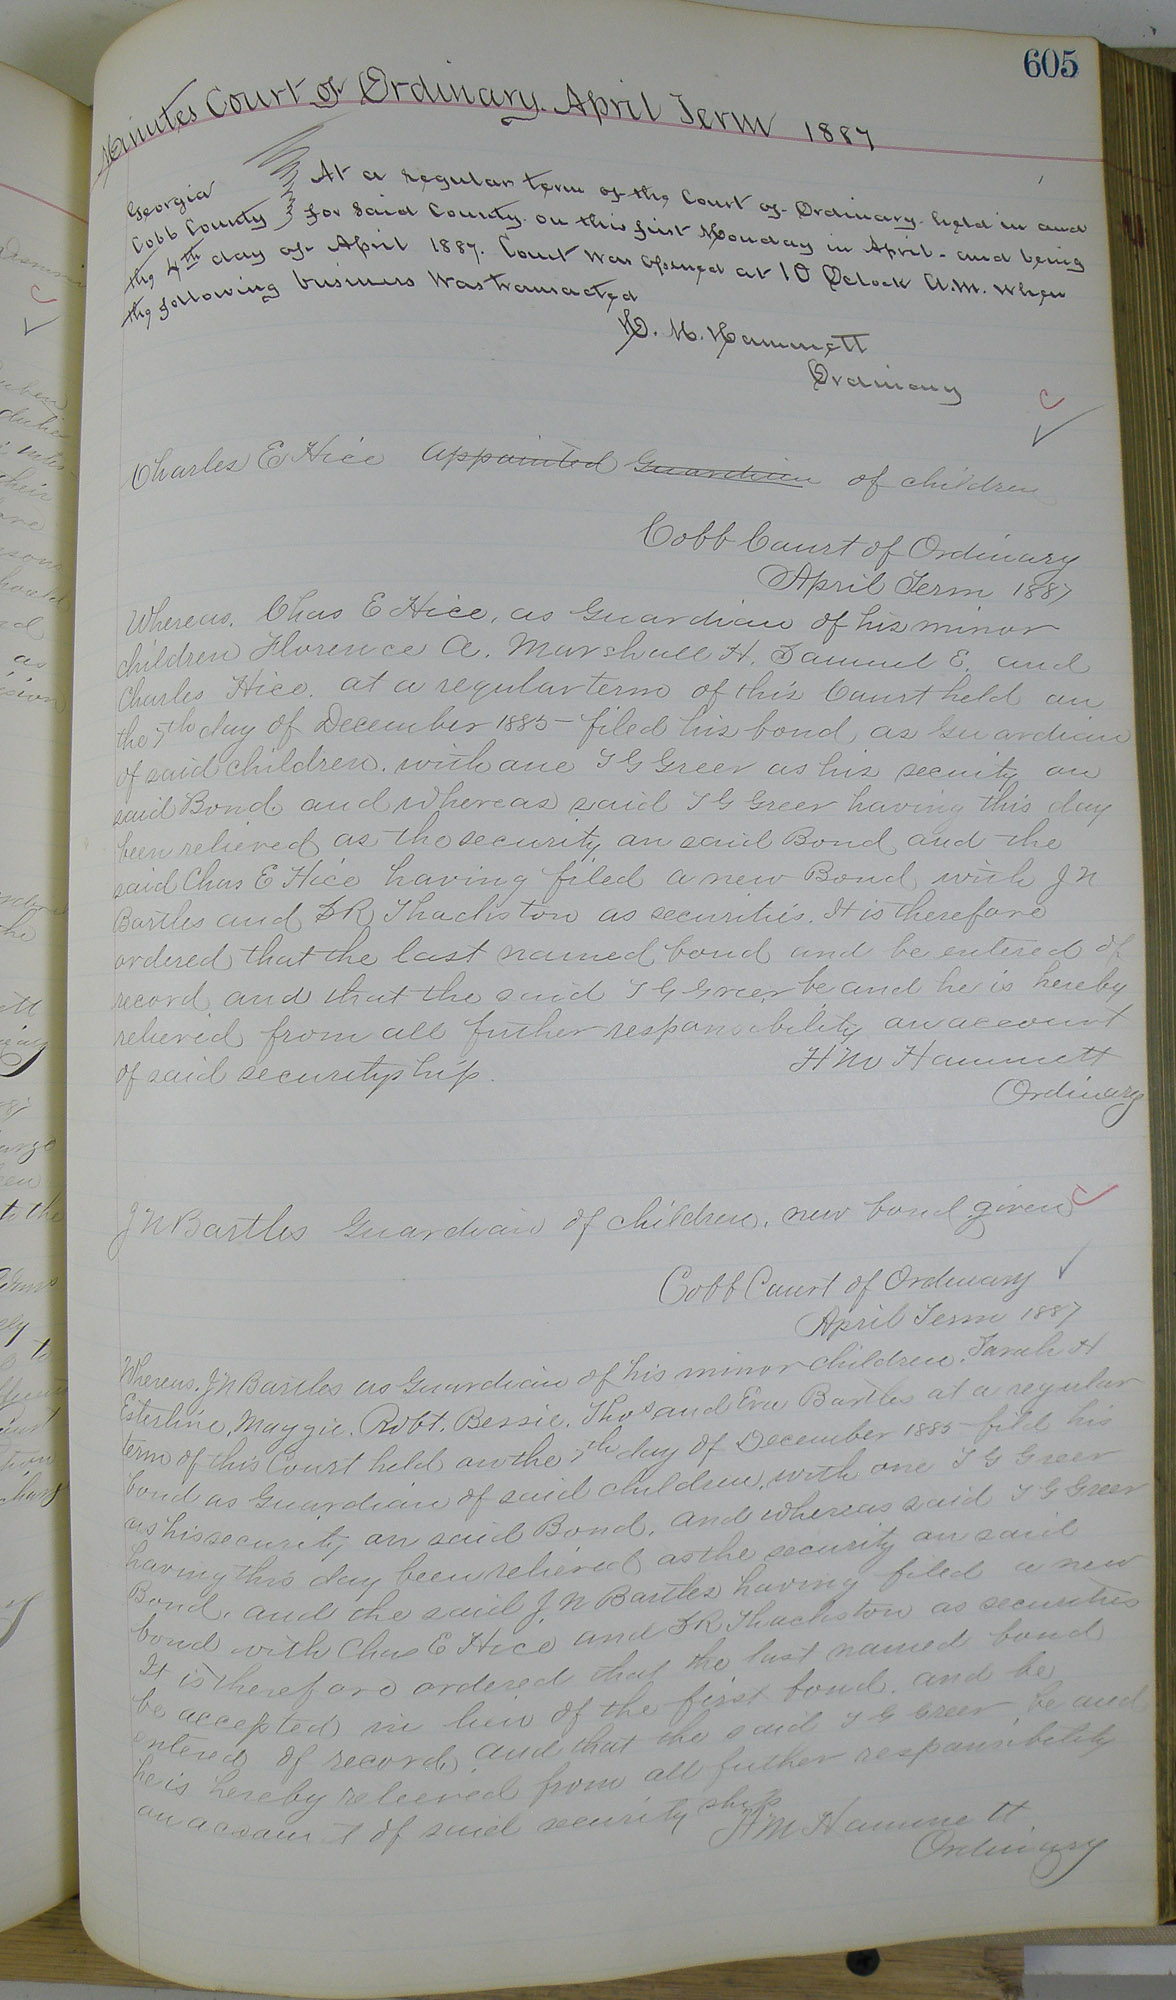 605
Minutes Court of Ordinary April Term 1887
Georgia
Cobb County
At a regular term of the Court of Ordinary held in and
for said County on this first Monday in April and being
the 4th day of April 1887. Court was opened at 10 Oclock A.M. when
the following business was transacted
H. M. Hammett
Ordinary
Charles E Hice appointed Guardian of children
Cobb Court of Ordinary
April Term 1887
Whereas. Chas E Hice, as Guardian of his minor
children Florence A. Marshall H. Samuel E. and
Charles Hice. at a regular term of this Court held on
the 7th day of December 1885 filed his bond as Guardian
of said children. with one T G Greer as his security on
said Bond and whereas said T G Greer having this day
been relieved as the security on said Bond and the
said Chas E Hice having filed a new Bond with J N
Bartles and Thackston as securities. It is therefore
ordered that the last named bond and be entered of
record and that the said T G Greer be and he is hereby
relieved from all futher responsibility on account
of said securityship.
H M Hammett
Ordinary
J N Bartles Guardian of children. new bond given
Cobb Court of Ordinary
April Term 1887
Whereas. J N Bartles as Guardian of his minor children. Sarah H
Esterline, Maggie. Robt. Bessie. Thos and Eva Bartles at a regular
term of this Court held on the 7th day of December 1885 fild his
bond as Guardian of said children. with one T G Greer
as his security on said Bond. and whereas said T G Greer
having this day been relieved as the security on said
Bond. and the said J. N Bartles having filed a new
bond with Chas E Hice and Thackston as securities
It is therefore ordered that the last named bond
be accepted in lieu of the first bond. and be
entered of record. and that the said T G Greer be and
he is hereby relieved from all futher responsibility
on account of said security ship
H M Hammett
Ordinary